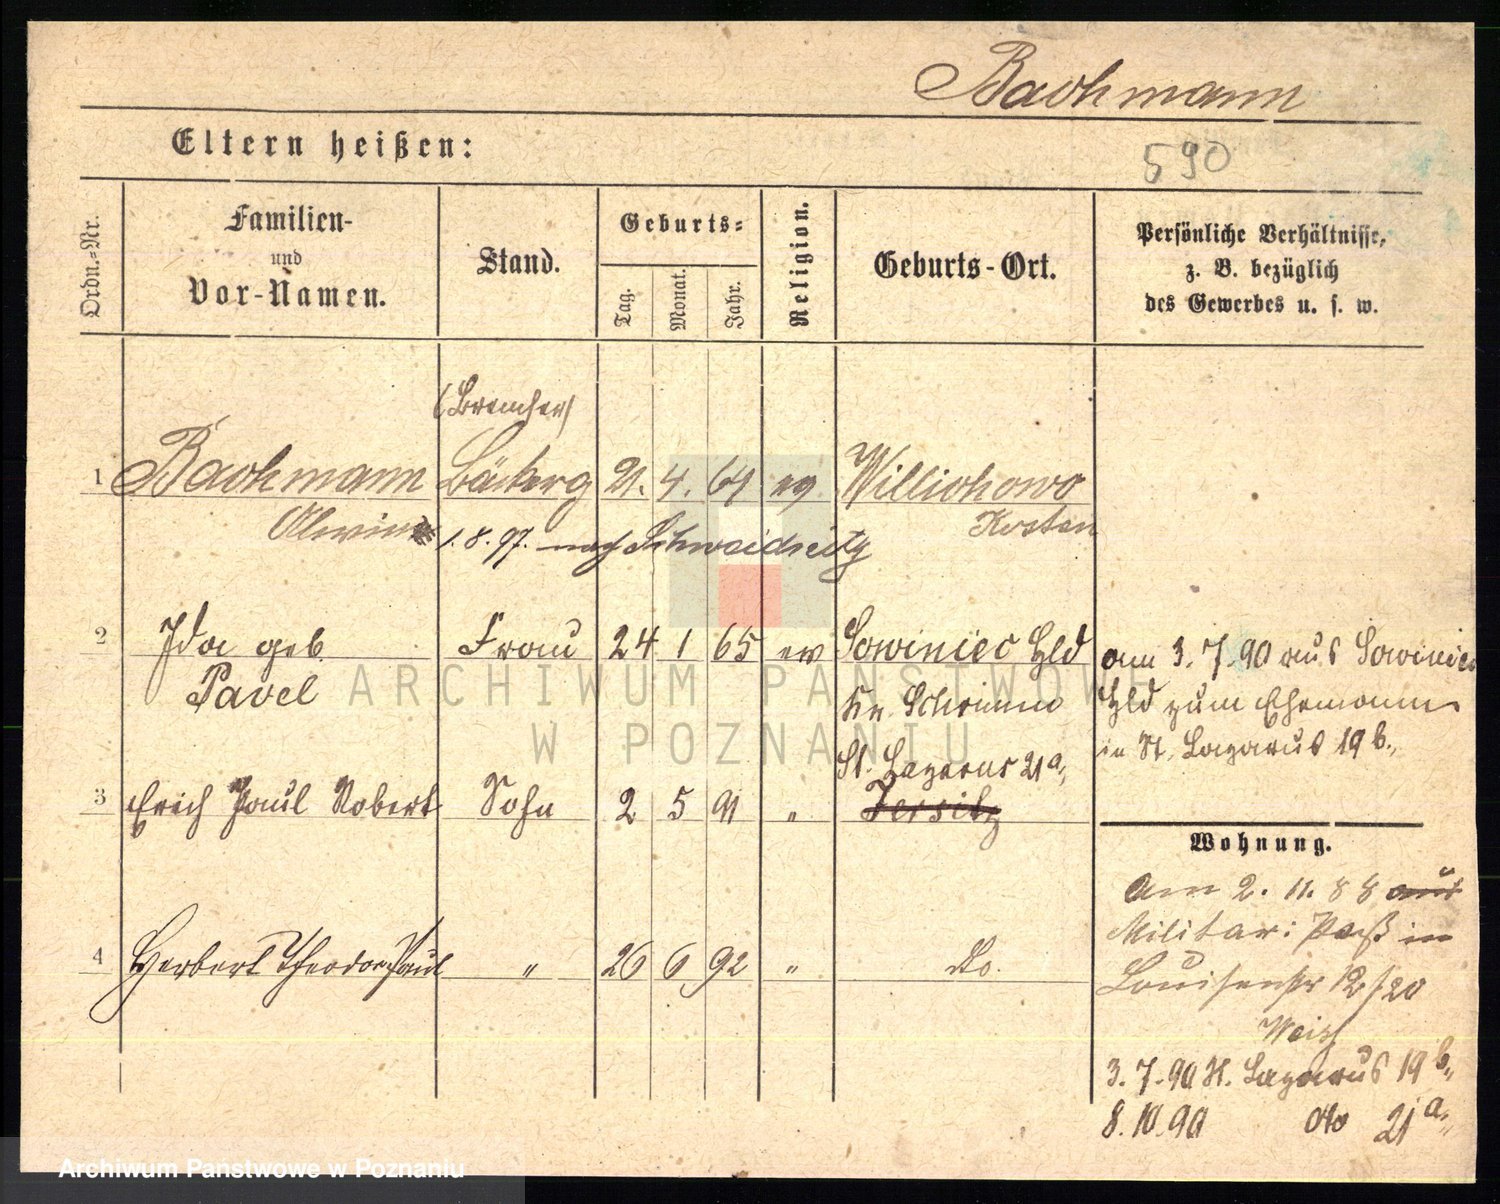 Bachmann
Eltern heißen:
590
Ordn.-Nr.
Familien-
und
Vor-Namen.
Stand.
Geburts-
Tag.
Monat.
Jahr.
Religion.
Geburts-Ort.
Persönliche Verhältnisse,
z. B. bezüglich
des Gewerbes u. s. w.
1 Bachmann Bäckerg 21. 4. 64 ev Willichowo
Kosten
1. 8. 97. nach Schweidnitz
2 Ida geb Frau 24 1 65 ev Sowiniec Hld
Pavel
Kr. Schrimm
am 3. 7. 90 aus Sowiniec
Hld zum Ehemann
in St. Lazarus 19 b.,
St. Lazarus 21 a,
3 Erich Paul Robert Sohn 2 5 91 " Jersitz
4 Herbert Theodor Paul " 26 6 92 " do.
Wohnung.
Am 2. 11. 88 aus
Militär: Paß in
Louisenstr 12/20
3. 7. 90 St. Lazarus 19 b.,
8. 10. 90 dto 21 a.,
ARCHIWUM PAŃSTWOWE
W POZNANIU
Archiwum Panstwowe w Poznaniu